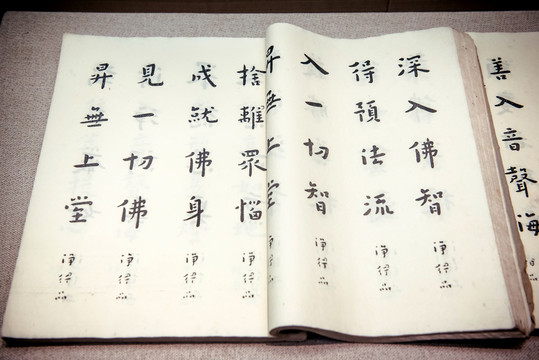 善入音聲海
深入佛智 淨行品
得預法流 淨行品
入一切智 淨行品
昇無上堂
捨離眾惱 淨行品
成就佛身 淨行品
見一切佛 淨行品
昇無上堂 淨行品